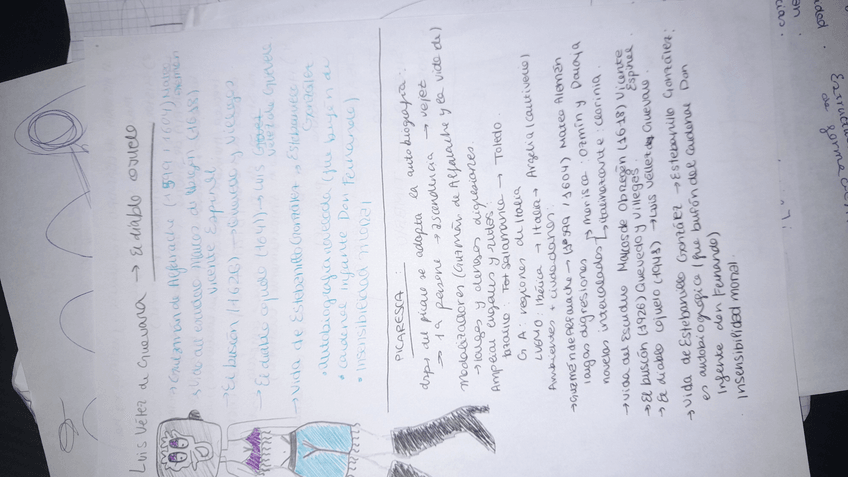 Luis Vélez de Guevara → El diablo cojuelo
→ Guzmán de Alfarache (1599, 1604) Mateo
Alemán
→ Vida del escudero Marcos de Obregón (1618)
Vicente Espinel
→ El buscón (1626) → Quevedo y Villegas
→ El diablo cojuelo (1641) → Luis Vélez de Guevara
→ Vida de Estebanillo González → Estebanillo
González
• Autobiografía novelada (fue bufón de
Cardenal Infante Don Fernando)
• Insensibilidad moral
PICARESCA:
dsps del pícaro se adapta la autobiografía:
→ 1a persona → ascendencia → vejez
moralizadores (Guzmán de Alfarache y la vida de)
→ largas y densas digresiones.
Ampliar lugares y rutas
Toledo.
G. A: regiones de Italia
Ibérica → Italia → Argelia (cautiverio)
Ambientes + ciudadanos:
→ Guzmán de Alfarache → (1599, 1604) Mateo Alemán
largas digresiones morisca: Ozmín y Daraja
novelas intercaladas Clorinia.
→ Vida del Escudero Marcos de Obregón (1618) Vicente
Espinel
→ El buscón (1926) Quevedo y Villegas.
→ El diablo cojuelo (1941) → Luis Vélez de Guevara.
→ Vida de Estebanillo González → Estebanillo González:
es autobiográfica (fue bufón del Cardenal Don
Infante don Fernando)
Insensibilidad moral.